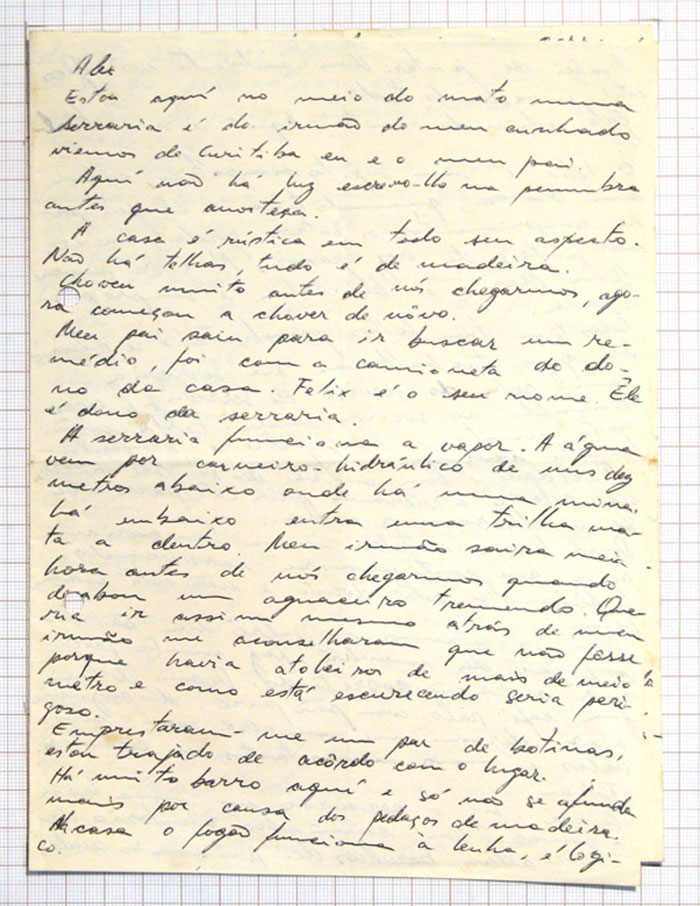 Alex
Estou aquí no meio do mato numa
serraria é do irmão do meu cunhado
viemos de Curitiba eu e o meu pai.
Aquí não há luz escrevo-lhe na penumbra
antes que anoiteça.
A casa é rústica em todo seu aspecto.
Não há telhas, tudo é de madeira.
Choveu muito antes de nós chegarmos, ago-
ra começou a chover de nôvo.
Meu pai saiu para ir buscar um re-
médio, foi com a camioneta do do-
no da casa. Felix é o seu nome. Êle
é dono da serraria.
A serraria funciona a vapor. A água
vem por carneiro-hidráulico de uns dez
metros abaixo onde há uma mina.
Lá embaixo entra uma trilha ma-
ta a dentro. Meu irmão saira meia
hora antes de nós chegarmos quando
desabou um aguaceiro tremendo. Que-
ria ir assim mesmo atrás de meu
irmão me aconselharam que não fosse
porque havia atoleiros de mais de meio
metro e como está escurecendo seria peri-
goso.
Emprestaram-me um par de botinas,
estou trajado de acôrdo com o lugar.
Há muito barro aquí e só não se afunda
mais por causa dos pedaços de madeira.
Na casa o fogão funciona à lenha, é lógi-
co.